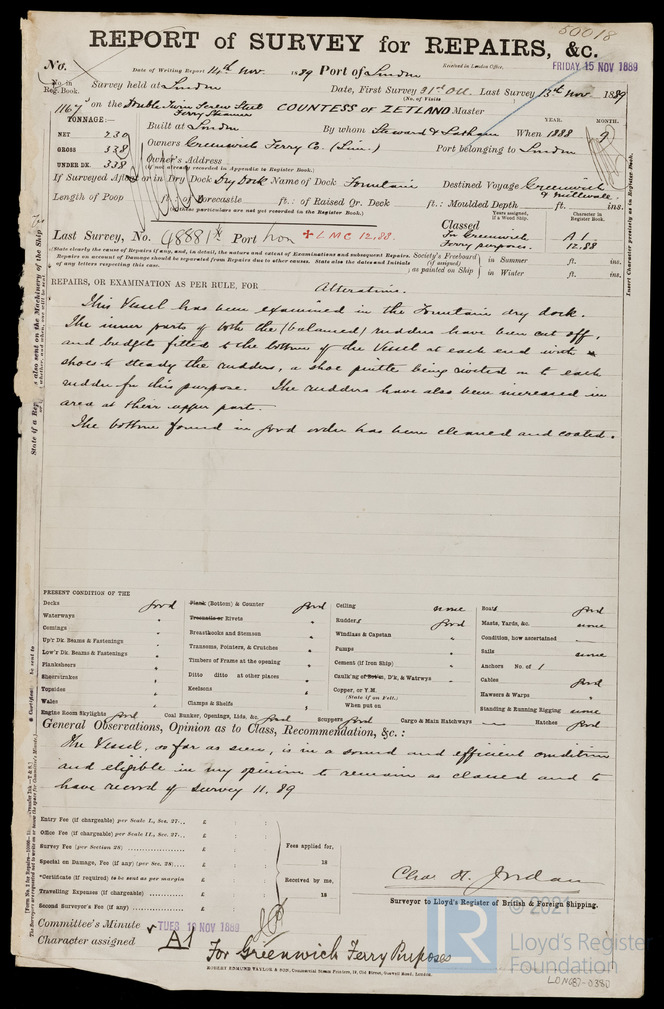 50018
REPORT of SURVEY for REPAIRS, &c.
No. Date of Writing Report 14th Nov. 1889 Port of London Received in London Office, FRIDAY 15 NOV 1889
No. in Reg. Book. Survey held at London Date, First Survey 31st Oct. Last Survey 13th Nov. 1889
(No. of Visits
1167 on the Double Twin Screw Steel Ferry Steamer COUNTESS OF ZETLAND Master
TONNAGE:— Built at London By whom Steward & Latham When 1888 YEAR. MONTH. 9
NET 239 Owners Greenwich Ferry Co. (Lim.) Port belonging to London
GROSS 338 Owner's Address
(if not already recorded in Appendix to Register Book.)
UNDER DK. 338
If Surveyed Afloat or in Dry Dock Dry Dock Name of Dock Fountain Destined Voyage Greenwich & Millwall
Length of Poop ft.: of Forecastle ft.: of Raised Qr. Deck ft.: Moulded Depth ft. ins.
(These particulars are not yet recorded in the Register Book.)
Years assigned, if a Wood Ship. Character in Register Book.
Last Survey, No. 48881 Port Lon + L M C 12.88. Classed For Greenwich Ferry purposes. A1 12.88
(State clearly the cause of Repairs if any, and, in detail, the nature and extent of Examinations and subsequent Repairs. Repairs on account of Damage should be separated from Repairs due to other causes. State also the dates and Initials of any letters respecting this case.
Society's Freeboard (if assigned) as painted on Ship in Summer ft. ins.
in Winter ft. ins.
REPAIRS, OR EXAMINATION AS PER RULE, FOR Alterations.
This Vessel has been examined in the Fountain dry dock.
The inner parts of both the (balanced) rudders have been cut off,
and budgets fitted to the bottom of the Vessel at each end with
shoes to steady the rudders, a shoe pintle being riveted on to each
rudder for this purpose. The rudders have also been increased in
area at their upper part.
The bottom found in good order has been cleaned and coated.
PRESENT CONDITION OF THE
Decks good
Waterways "
Comings "
Up'r Dk. Beams & Fastenings "
Low'r Dk. Beams & Fastenings "
Planksheers "
Sheerstrakes "
Topsides "
Wales "
Engine Room Skylights good
Plank (Bottom) & Counter good
Treenails or Rivets "
Breasthooks and Stemson "
Transoms, Pointers, & Crutches "
Timbers of Frame at the opening "
Ditto ditto at other places "
Keelsons "
Clamps & Shelfs "
Coal Bunker, Openings, Lids, &c. good
Ceiling none
Rudders good
Windlass & Capstan "
Pumps "
Cement (if Iron Ship) "
Caulk'ng of Bot'm, D'k, & Watrwys "
Copper, or Y.M.
(State if on Felt.)
When put on
Scuppers good Cargo & Main Hatchways
Boats good
Masts, Yards, &c. none
Condition, how ascertained
Sails none
Anchors No. of 1
Cables good
Hawsers & Warps "
Standing & Running Rigging none
Hatches good
General Observations, Opinion as to Class, Recommendation, &c.:
The Vessel, so far as seen, is in a sound and efficient condition
and eligible in my opinion to remain as classed and to
have record of survey 11.89
Entry Fee (if chargeable) per Scale I., Sec. 27... £ : :
Office Fee (if chargeable) per Scale II., Sec. 27... £ : :
Survey Fee (per Section 28) £ : :
Special on Damage, Fee (if any) (per Sec. 28) £
Certificate (if required) to be sent as per margin £
Travelling Expenses (if chargeable) £
Second Surveyor's Fee (if any) £
Fees applied for.
18
Received by me,
18
Chas H. Jordan
Surveyor to Lloyd's Register of British & Foreign Shipping.
Committee's Minute TUES 19 NOV 1889
Character assigned A1 For Greenwich Ferry Purposes
ROBERT EDMUND TAYLOR & SON, Commercial Steam Printers, 19, Old Street, Goswell Road, London.
© 2021
LR
Lloyd's Register
Foundation
LON687-0380
Insert Character precisely as in Register Book.